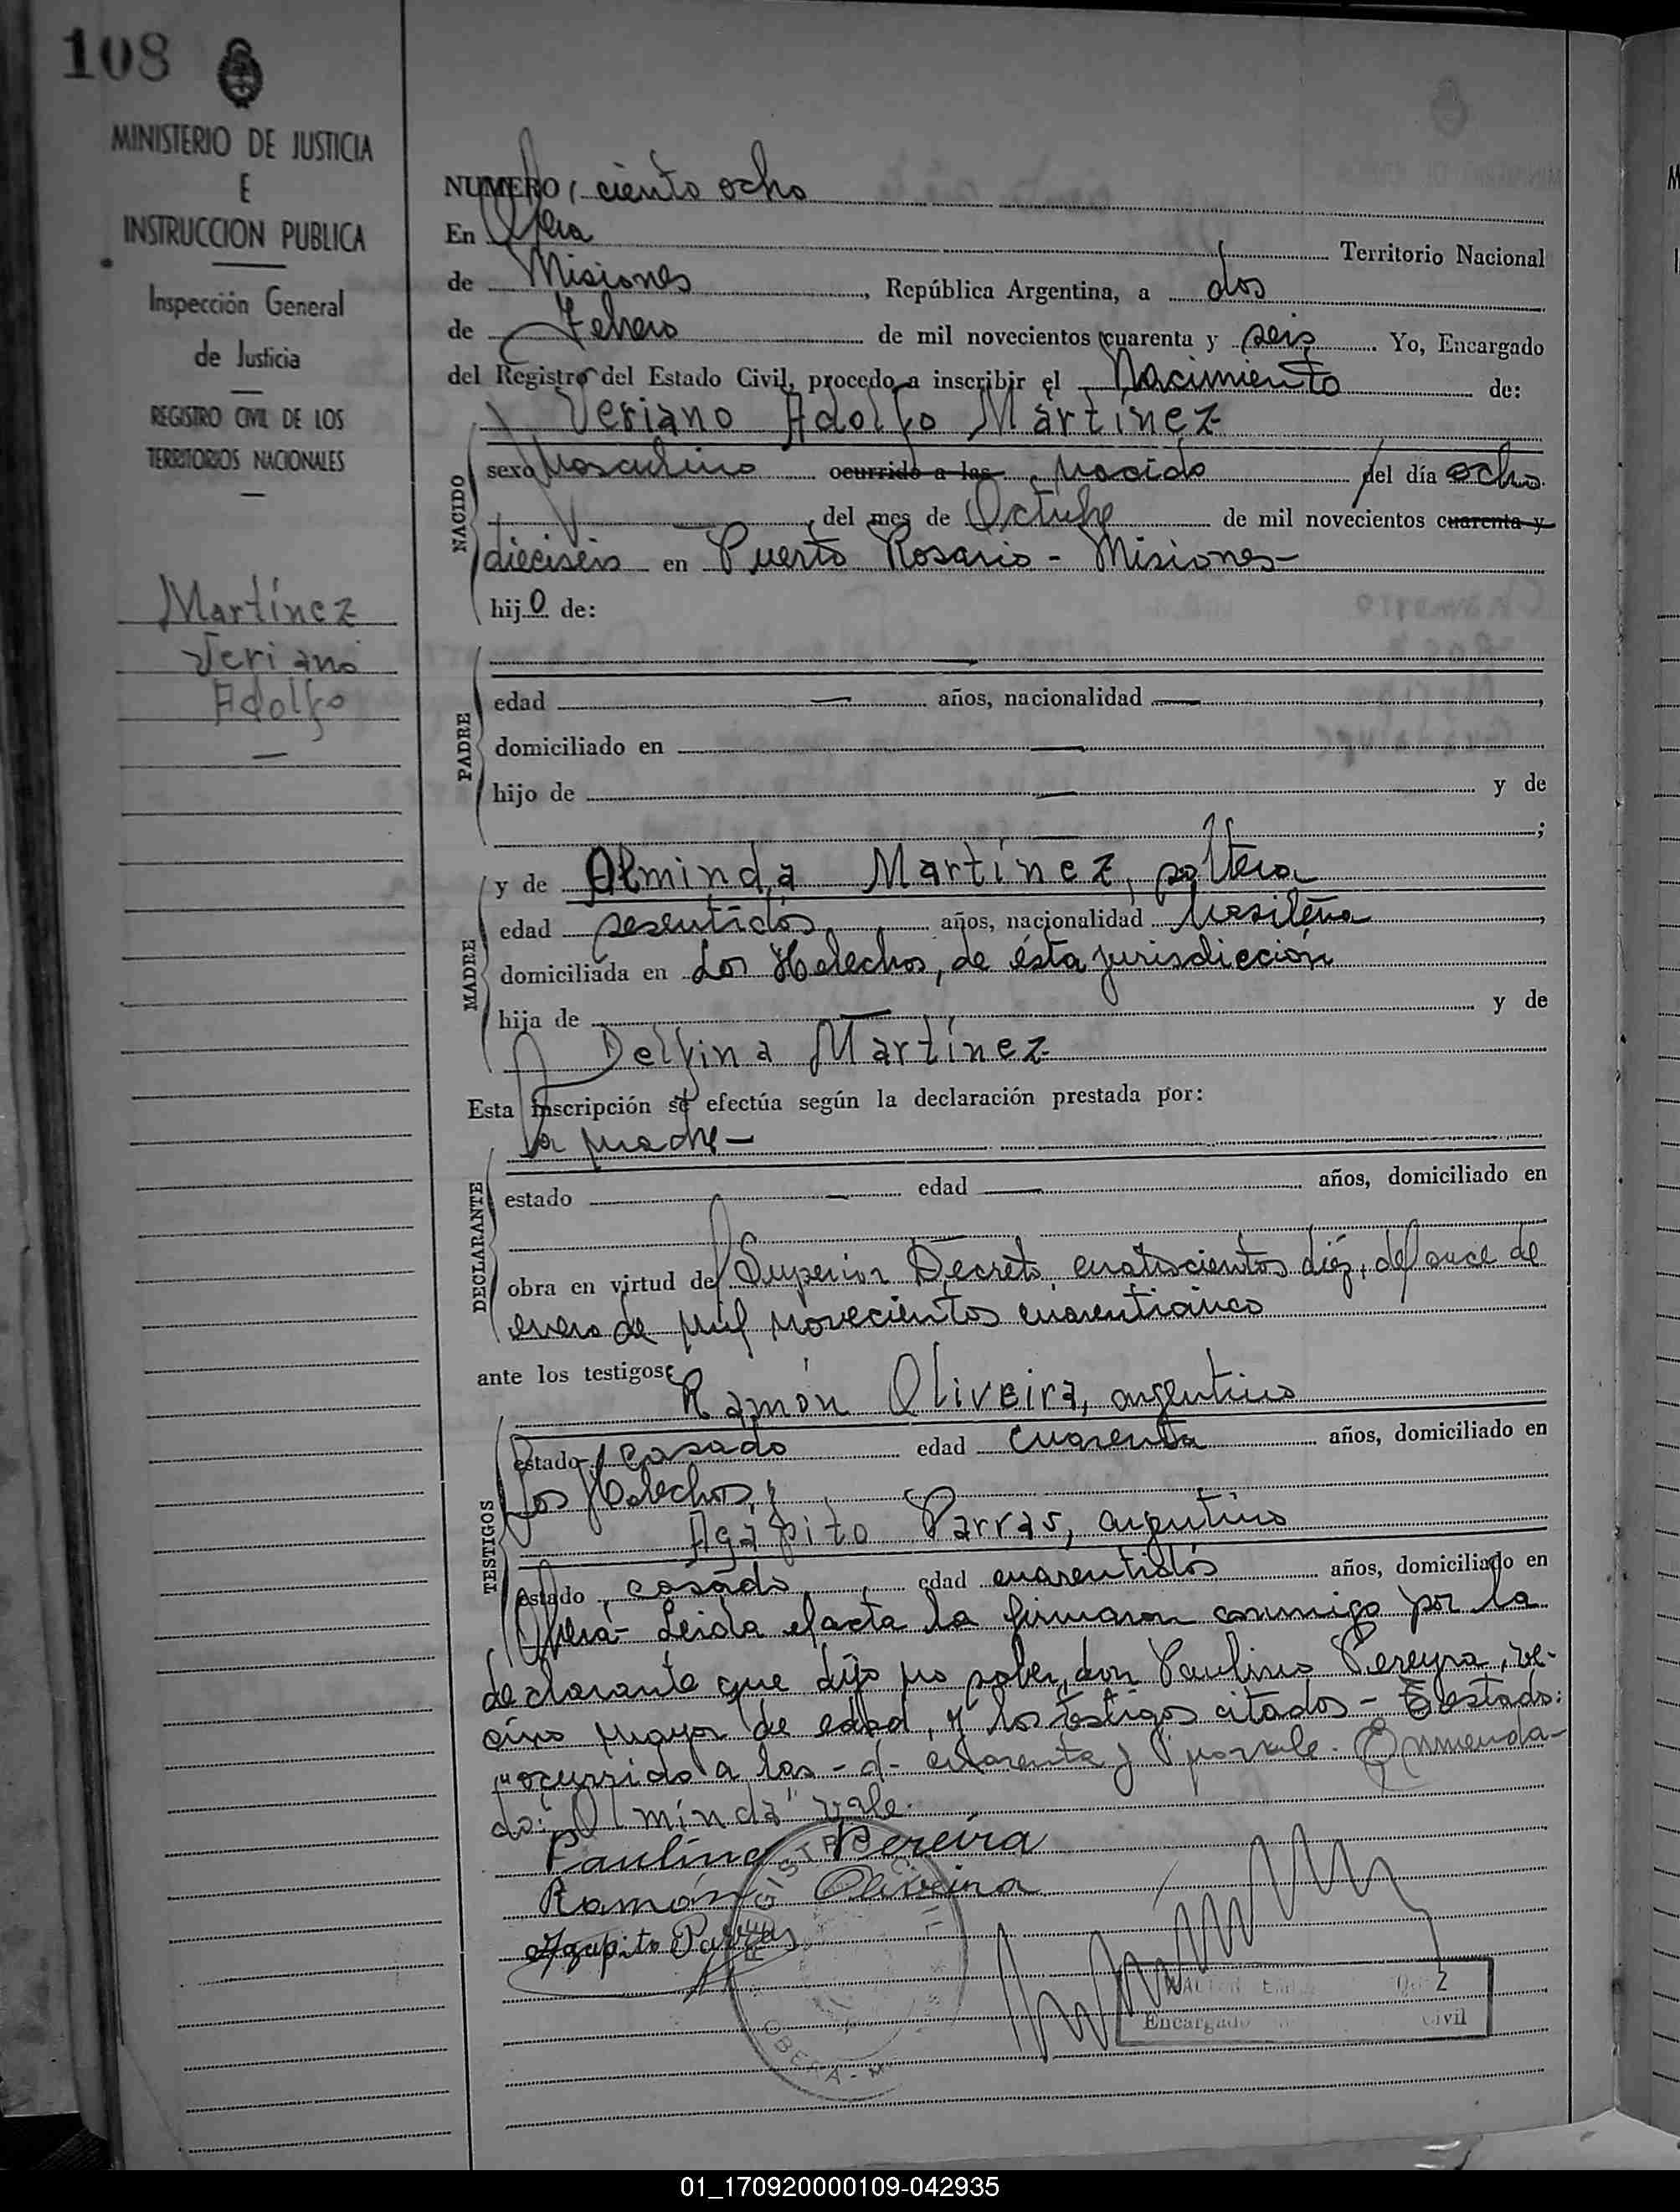 108
MINISTERIO DE JUSTICIA
E
INSTRUCCION PUBLICA
Inspección General
de Justicia
REGISTRO CIVIL DE LOS
TERRITORIOS NACIONALES
Martínez
Veriano
Adolfo
—
NUMERO, ciento ocho
En Oberá Territorio Nacional
de Misiones, República Argentina, a dos
de Febrero de mil novecientos cuarenta y seis. Yo, Encargado
del Registro del Estado Civil, procedo a inscribir el Nacimiento de:
Veriano Adolfo Martínez
NACIDO
sexo Masculino ocurrido a las nacido del día ocho
—, del mes de Octubre de mil novecientos cuarenta y
dieciseis en Puerto Rosario - Misiones -
hijo de:
PADRE
—
edad — años, nacionalidad —,
domiciliado en —
hijo de — y de
—;
MADRE
y de Olminda Martínez, soltera
edad sesentidós años, nacionalidad brasileña,
domiciliada en Los Helechos, de ésta jurisdicción
hija de — y de
Delfina Martínez
Esta inscripción se efectúa según la declaración prestada por:
la madre —
DECLARANTE
estado — edad — años, domiciliado en
—
obra en virtud del Superior Decreto cuatrocientos diéz, del once de
enero de mil novecientos cuarenticinco
ante los testigos:
Ramón Oliveira, argentino
TESTIGOS
estado, casado edad cuarenta años, domiciliado en
Los Helechos, y
Agápito Parras, argentino
estado, casado, edad cuarentidós años, domiciliado en
Oberá - Leida el acta la firmaron conmigo por la
declarante que dijo no saber, don Paulino Pereyra, ve-
cino mayor de edad, y los testigos citados - Testado:
"ocurrido a las - d - cuarenta y" no vale. Enmenda-
do: "Olminda" vale.
Paulino Pereira
Ramón Oliveira
Agapito Parras
REGISTRO
OBERA - M
Encargado Civil
01_170920000109-042935